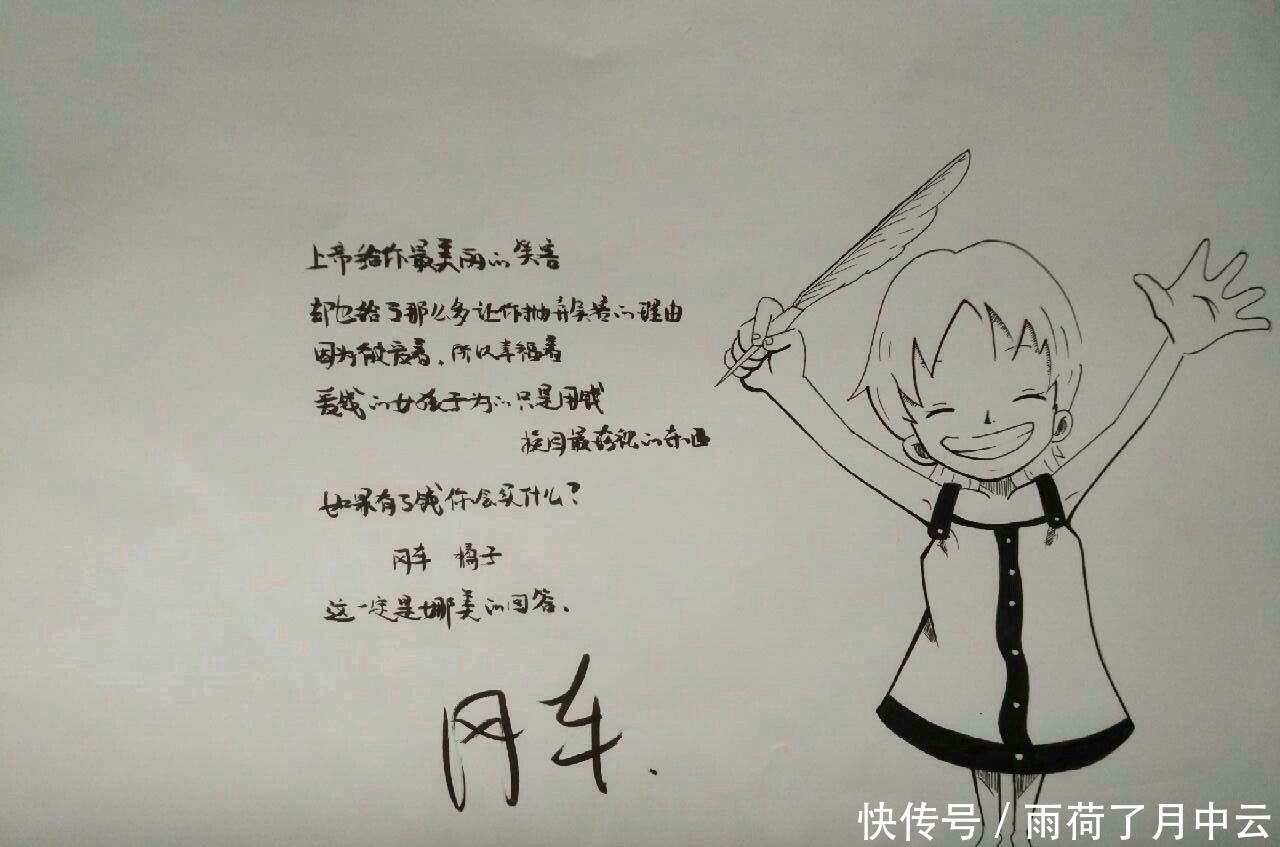 上帝给你最美丽的笑容
却也给了那么多让你抛弃笑容的理由
因为被爱着、所以幸福着
爱钱的女孩子为的只是用钱
换回最珍视的东西
如果有了钱你会买什么?
风车 橘子
这一定是娜美的回答、
风车.
快传号 / 雨荷了月中云